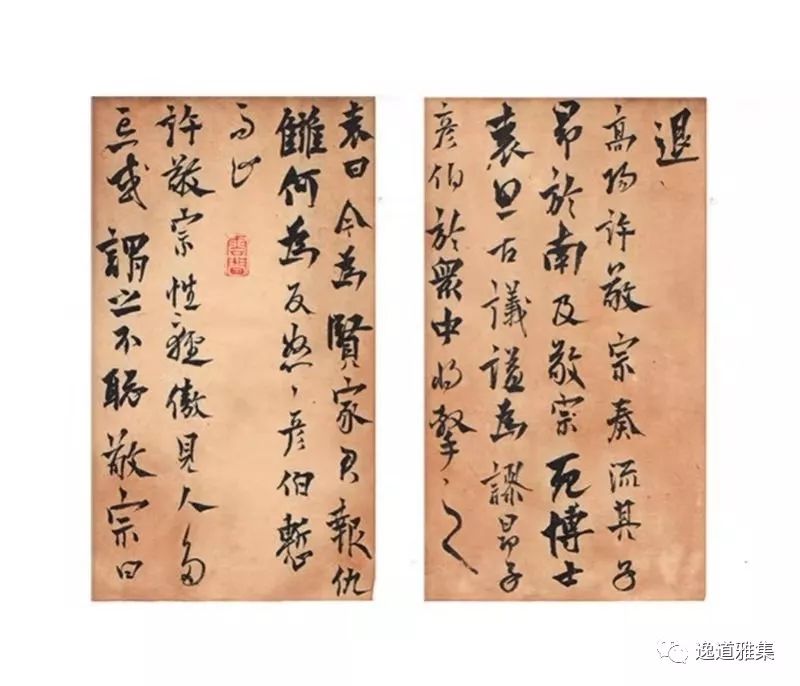 退
高陽許敬宗奏流其子
昂於南及敬宗死博士
袁思古議謚為謬昂子
彦伯於衆中将擊之
袁曰今為賢家君報仇
讎何為反怒彦伯慙
而止
許敬宗性輕傲見人多
忘或謂之不聡敬宗曰
逸道雅集